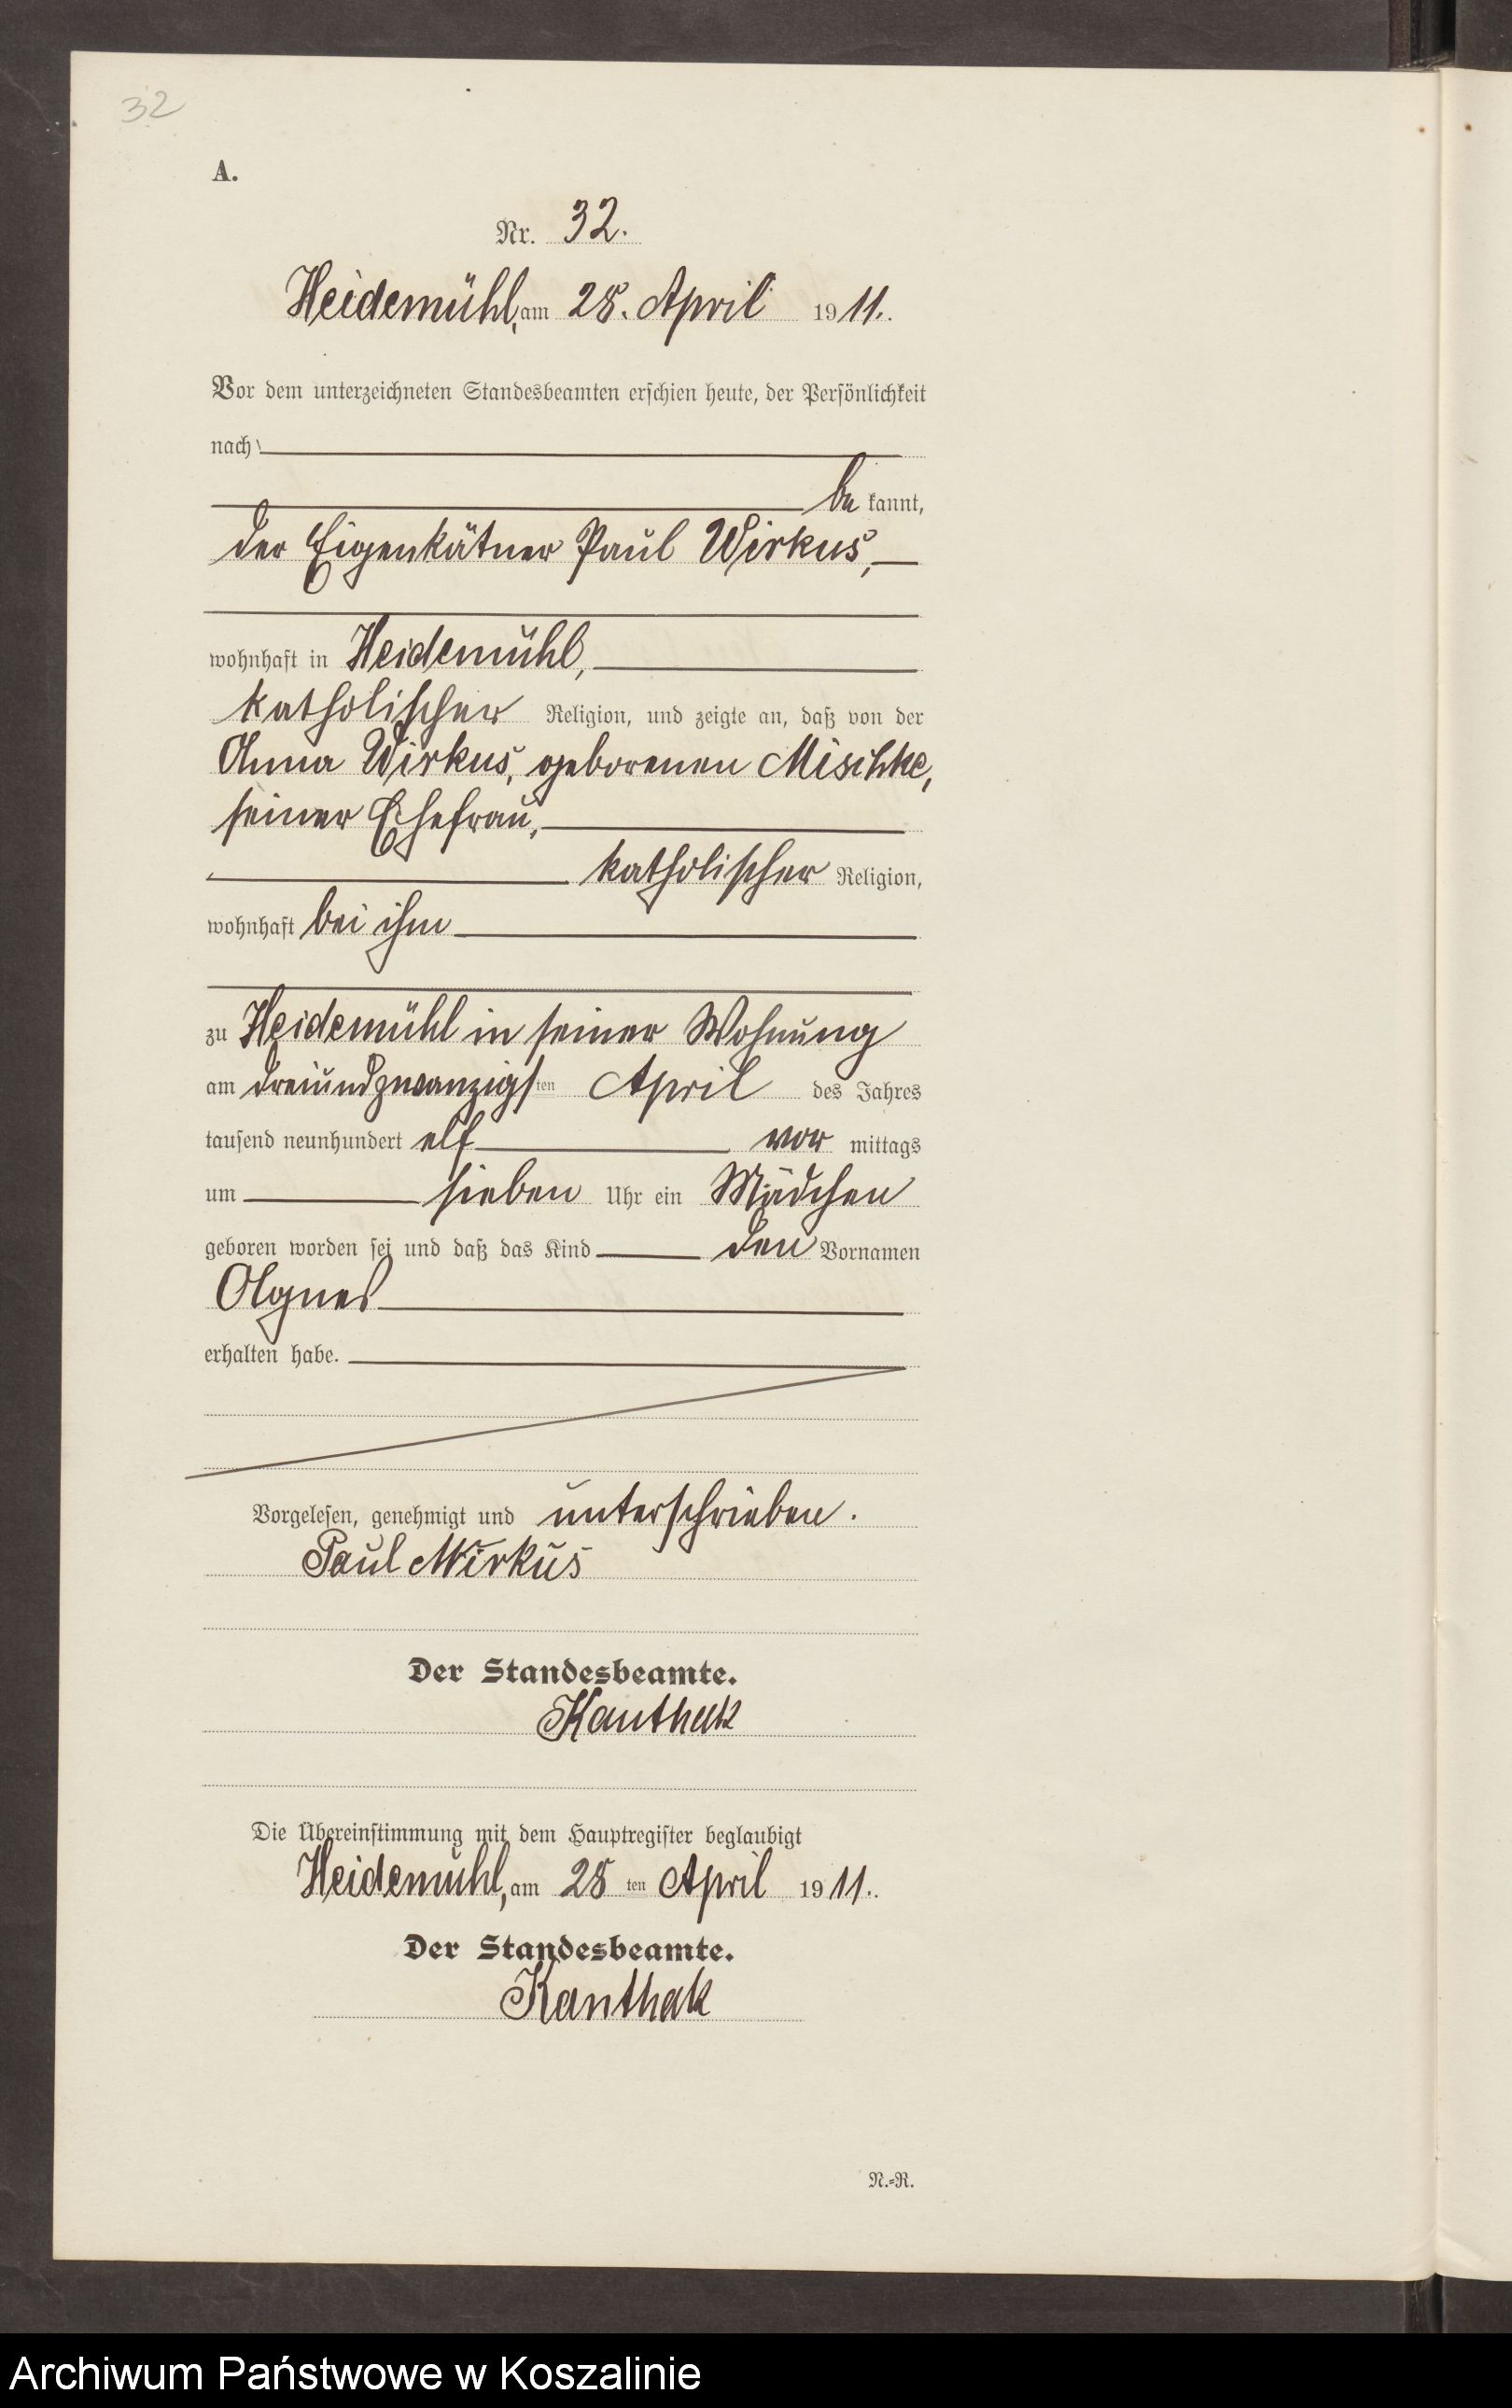 32
A.
Nr. 32.
Heidemühl, am 28. April 1911.
Vor dem unterzeichneten Standesbeamten erschien heute, der Persönlichkeit
nach
be kannt,
der Eigenkätner Paul Wirkus,
wohnhaft in Heidemühl,
katholischer Religion, und zeigte an, daß von der
Anna Wirkus, geborenen Mischke,
seiner Ehefrau,
katholischer Religion,
wohnhaft bei ihm
zu Heidemühl in seiner Wohnung
am dreiundzwanzigsten April des Jahres
tausend neunhundert elf vor mittags
um sieben Uhr ein Mädchen
geboren worden sei und daß das Kind den Vornamen
Agnes
erhalten habe.
Vorgelesen, genehmigt und unterschrieben.
Paul Wirkus
Der Standesbeamte.
Kanthak
Die Übereinstimmung mit dem Hauptregister beglaubigt
Heidemühl, am 28 ten April 1911.
Der Standesbeamte.
Kanthak
N.-R.
Archiwum Państwowe w Koszalinie